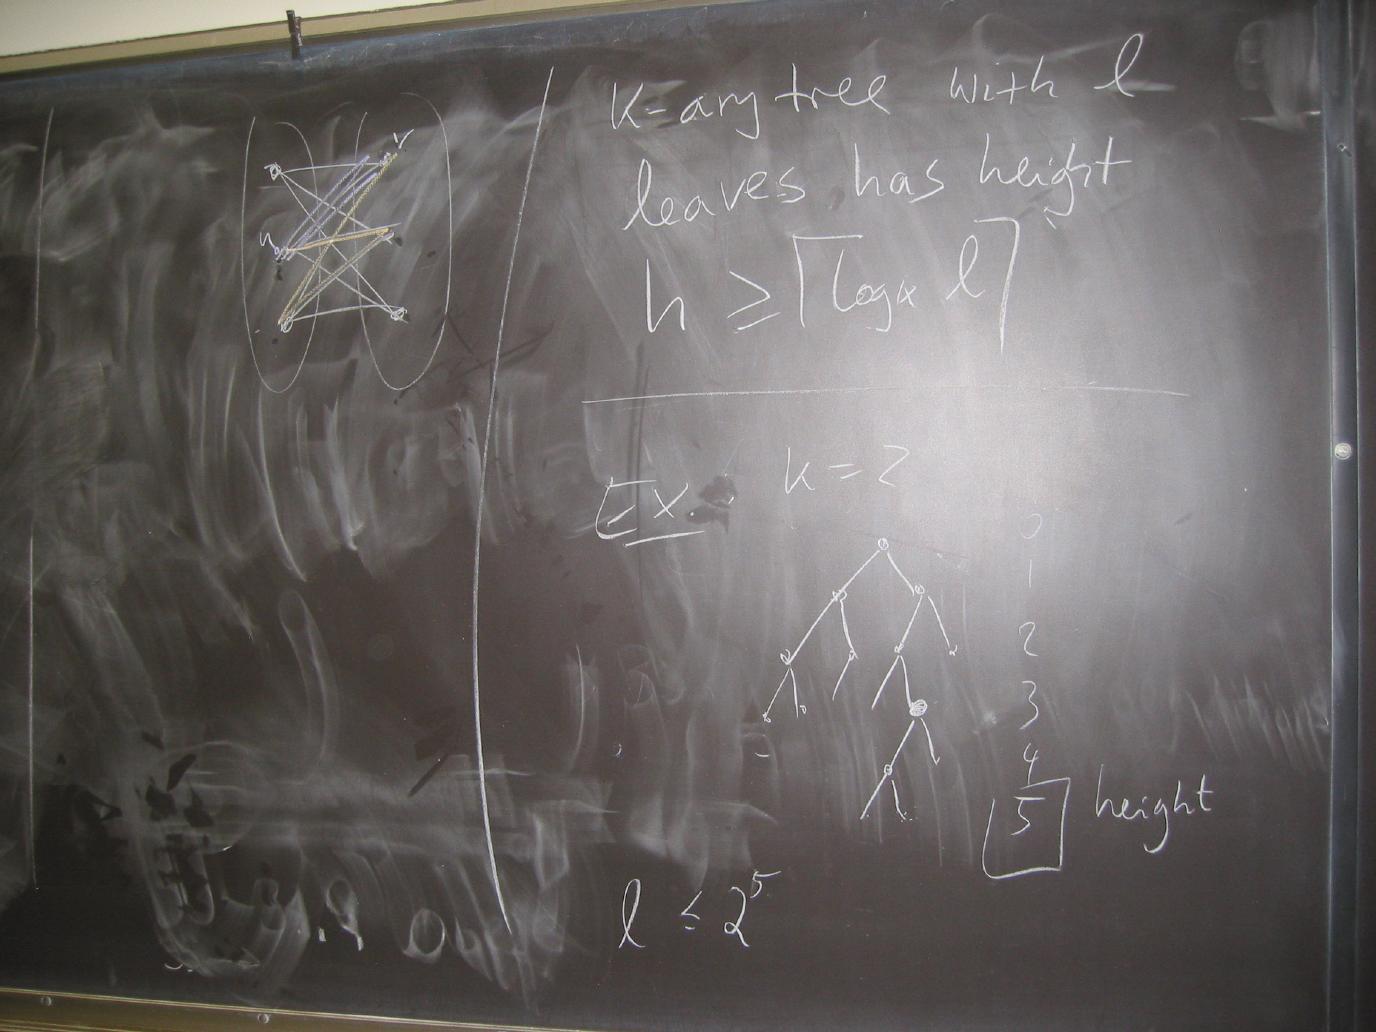 v
u
K-ary tree with l
leaves has height
h ≥ ⌈logk l⌉
Ex. k = 2
0
1
2
3
4
5 height
l ≤ 2^5